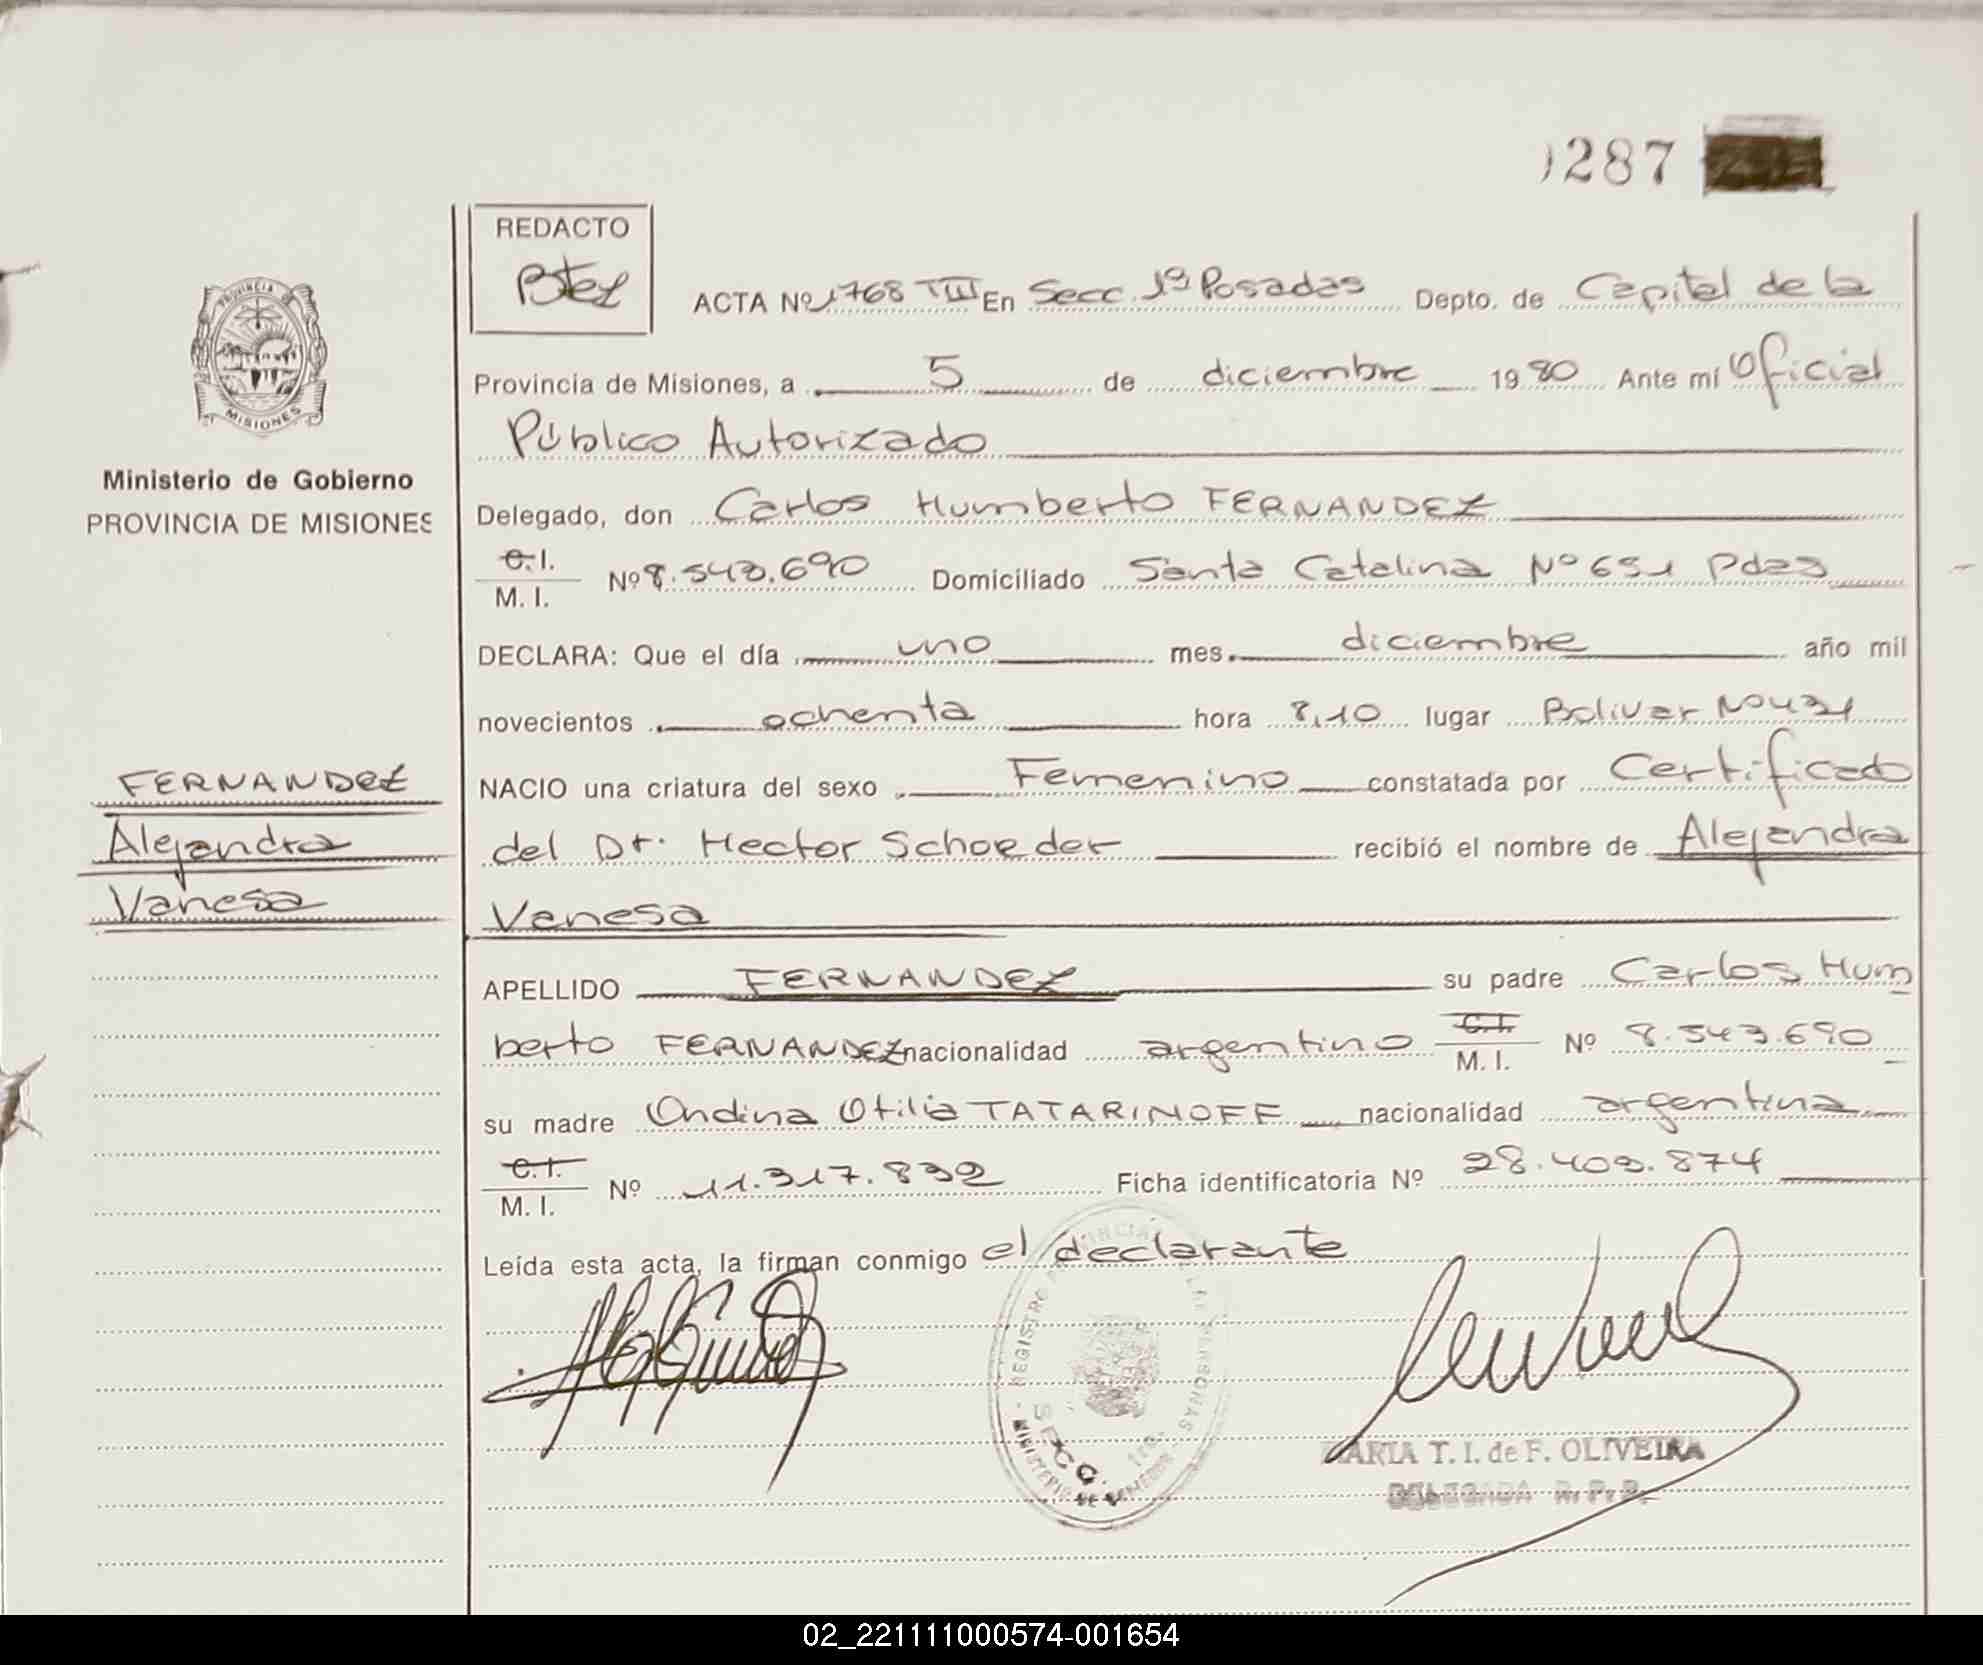 287
REDACTO
PROVINCIA DE
MISIONES
ACTA Nº 1768 TIII En Secc. 1ª Posadas Depto. de Capital de la
Provincia de Misiones, a 5 de diciembre 1980 Ante mí Oficial
Público Autorizado
Ministerio de Gobierno
PROVINCIA DE MISIONES
Delegado, don Carlos Humberto FERNANDEZ
C.I.
M. I. Nº 8.543.690 Domiciliado Santa Catalina Nº 651 Pdas
DECLARA: Que el día uno mes diciembre año mil
novecientos ochenta hora 8,10 lugar Bolivar Nº431
FERNANDEZ
Alejandra
Vanesa
NACIO una criatura del sexo Femenino constatada por Certificado
del Dr. Hector Schoeder recibió el nombre de Alejandra
Vanesa
APELLIDO FERNANDEZ su padre Carlos Hum
berto FERNANDEZ nacionalidad argentino C.I. M. I. Nº 8.543.690
su madre Ondina Otilia TATARINOFF nacionalidad argentina
C.I.
M. I. Nº 11.317.832 Ficha identificatoria Nº 28.409.874
Leída esta acta, la firman conmigo el declarante
REGISTRO PROVINCIAL DE LAS PERSONAS
SECC. 1ra.
MINISTERIO DE
MARIA T. I. de F. OLIVEIRA
DELEGADA R. P. P.
02_221111000574-001654